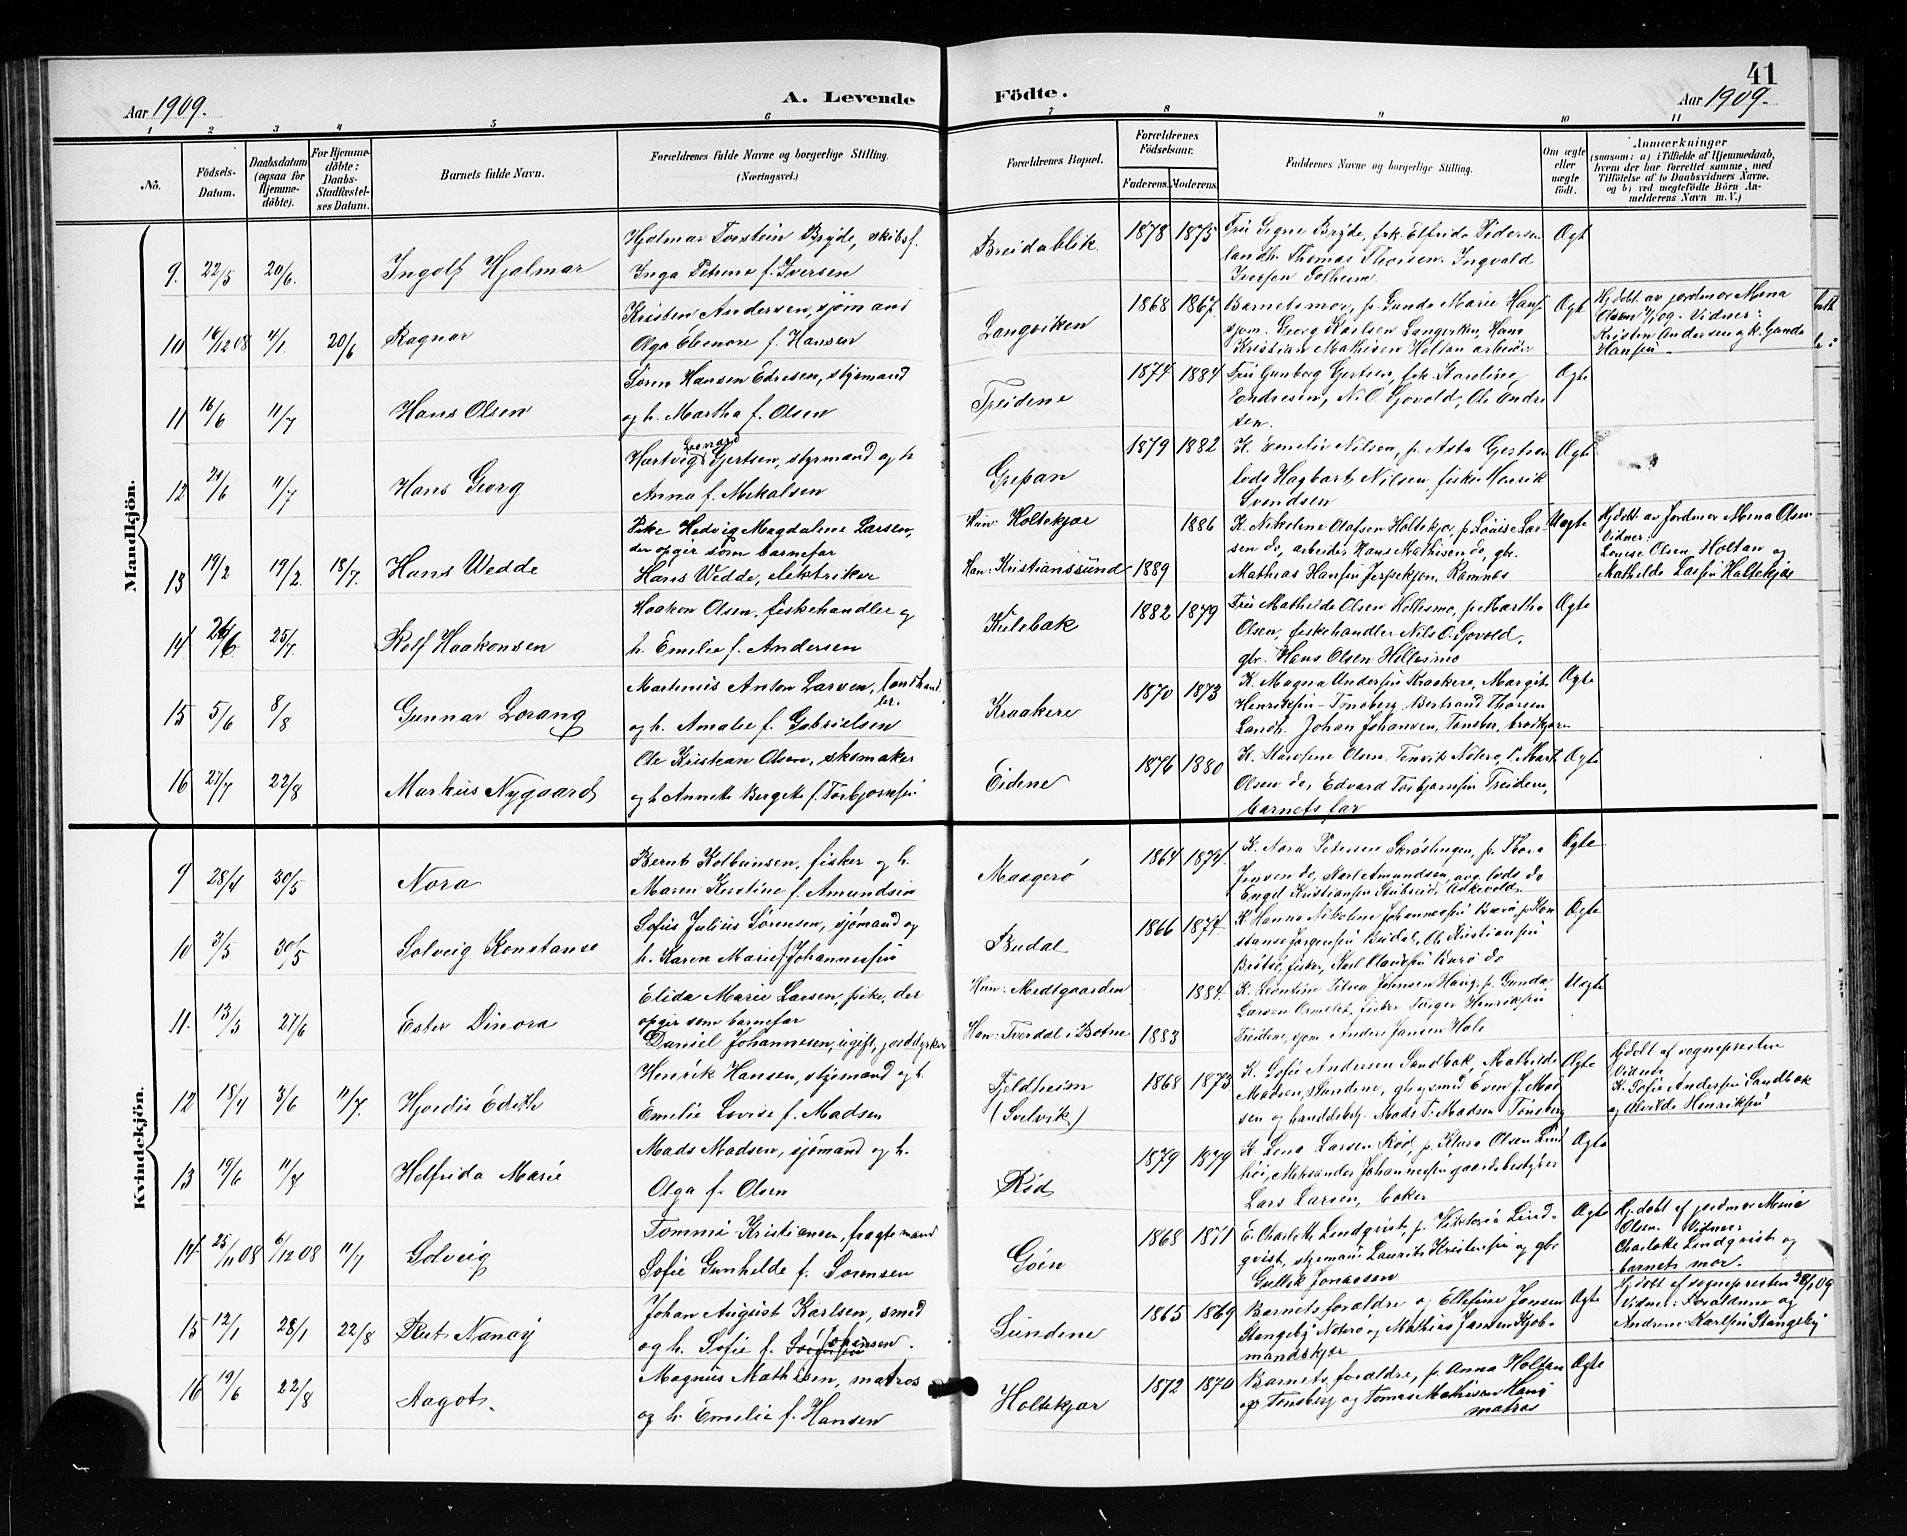 41
Aar 1909.
A. Levende
Födte.
Aar 1909.
1 2 3 4 5 6 7 8 9 10 11
No.
Födsels-Datum.
Daabsdatum (ogsaa for Hjemmedöbte).
For Hjemmedöbte: Daabs-Stadfæstelses Datum.
Barnets fulde Navn.
Forældrenes fulde Navne og borgerlige Stilling. (Næringsvei.)
Forældrenes Bopæl.
Forældrenes Födselsaar.
Faderens. Moderens.
Faddernes Navne og borgerlige Stilling.
Om ægte eller uægte födt.
Anmærkninger
(saasom: a) i Tilfælde af Hjemmedaab,
hvem der har forrettet samme, med
Tilföielse af to Daabsvidners Navne,
og b) ved uægtefödte Börn Anmelderens Navn m. V.)
Mandkjön.
9. 22/5 20/6. Ingolf Hjalmar
Hjalmar Torstein Bryde, skibsf.
Inga Petrine f. Iversen
Breidablik. 1878 1875
Fru Signe Bryde, frk. Elfrida Pedersen
landh. Thomas Thorsen. Ingvald
Iversen Solheim.
Ægt
10 16/12 08 4/1. 20/6 Ragnar
Kristen Andersen, sjømand
Olga Elenore f. Hansen
Langviken 1868 1867.
Barnets mor, p. Gunda Marie Hans
sjøm. Georg Karlsen Langviken, Hans
Kristian Mathisen Holtan arbeider
Ægte
Hj.døbt av jordmor Mina
Olsen 4/1 09. Vidner:
Kristen Andersen og k. Gunda
Hansen
11 16/6 11/7 Hans Olsen
Sören Hansen Edresen, styrmand
og h. Martha f. Olsen
Treidene 1874 1884
Fru Gunborg Gertsen, frk. Karoline
Endresen, N. O. Govold, Ole Endre
sen.
Ægte
12 21/6 11/7 Hans Georg
Hartvig Leonard Gjertsen, styrmand og h
Anna f. Mikalsen
Grepan 1879 1882
K. Emilie Nilsen, p. Asta Gjertsen
lods Hagbart Nilsen, fisker Henrik
Svendsen
Ægte
13 19/2 19/2 18/7. Hans Wedde
Pike Hedvig Magdalene Larsen,
der opgir som barnefar
Hans Wedde, elektriker
Hun: Holtekjær 1886
Han: Kristianssund 1889
K. Nikoline Olafsen Holtekjær, p. Louise Lar-
sen do, arbeider Hans Mathisen do, gbr.
Mathias Hansen Jerpekjøn, Ramnes
Uægte
Hj.døbt av Jordmor Mina Olsen
Vidner:
Louise Olsen, Holtan og
Mathilde Larsen Holtekjær
14 26/6. 25/7 Rolf Haakonsen
Haakon Olsen, fiskehandler og
h. Emilie f. Andersen
Kilebak 1882 1879
Fru Mathilde Olsen Hollesmo, p. Martha
Olsen, fiskehandler Nils O. Govold,
gbr. Hans Olsen Hollesmo
Ægte
15 5/6 8/8 Gunnar Lorang
Martinus Anton Larven, landhand
ler.
og h. Amalie f. Gabrielsen
Kraakere 1870 1873
K. Magna Andersen Kraakere, Margit
Henriksen - Tønsberg Bertrand Thorsen
Landh. Johan Johansen, Tønsber, brødkjører
Ægte
16 27/7 22/8 Markus Nygaard
Ole Kristian Olsen, skomaker
og h Annette Bergete f. Torbjørnsen
Eidene 1876 1880
K. Olsen, Tenvik Nøterø, P. Mart
Olsen do, Edvard Torbjørnsen Treidene,
barnets far
Ægte
Kvindekjön.
9 28/4 30/5 Nora
Bernt Kolbensen, fisker og h.
Maren Kirstine f. Amundsen
Maagerø 1864 1874.
K. Nora Petersen, p. Thora
Jensen do, Karl Amundsen, avg. lods do
Engel Kristiansen
Ægte
10 3/5 30/5 Solveig Konstanse
Sofus Julius Sørensen, sjømand og
h. Karen Marie f. Johannessen
Budal 1866 1874.
K. Hanna Nikoline Johannessen Bærø, p. Kon
stanse Jørgensen Budal, Ole Kristiansen
Brøtsø, fisker, Karl Olausen Bærø do
Ægte
11. 13/5 27/6 Ester Dinora
Elida Marie Larsen, pike, der
opgir som barnefar
Daniel Johannesen, ugift, jorddyrker
Hun: Medtgaarden 1884.
Han: Tverdal i Botne 1883
K. Leontine Johnsen Haug, p. Gunda
Larsen Ormelet, fisker Henriksen
Treidene, sjøm. Anders Jansen Hole
Uægte
12 18/4 3/6 11/7. Hjørdis Edith
Henrik Hansen, styrmand og h.
Emilie Lovise f. Madsen
Fjeldheim
(Svelvik) 1868 1873
K. Sofie Andersen Sandbæk, Mathilde
Madsen, Sundene, gbr og smed Even J. Mad
sen og handelsbtj. Mads P. Madsen Tønsberg
Ægte
Hj.døbt af sognepresten
Vidne:
K. Sofie Andersen Sandbæk
og Alvilde Henriksen
13 19/6 11/7 Helfrida Marie
Mads Madsen, sjømand og h.
Olga f. Olsen
Rød 1879 1879
K. Lena Larsen Rød, p. Klara Olsen Lind
høi, Aleksander Johannessen gaardsbestyrer
Lars Larsen, baker
Ægte
14. 25/11 08 6/12 08 11/7 Solveig
Tommi Kristiansen, fragtemand
Sofie Gunhilde f. Sørensen
Gøen 1868 1871
E. Charlotte Lindqvist, p. Viktoria Lind-
qvist, styrmand Laurits Kristensen og gbr
Gullik Jonassen
Ægte
Hj.døbt af jordmor Mina
Olsen. Vidner:
Charlotte Lindqvist og
barnets mor.
15 12/1 28/1 22/8 Rut Nancy
Johan August Karlsen, smed
og h. Sofie f. Johansen.
Sundene 1865 1869
Barnets forældre og Ellefine Jansen
Stangeby Nøterø og Mathias Jansen Kjøb-
mandskjær
Ægte
Hj.døbt af sognepresten 28/1 09
Vidner: Forældrene og
Andrine Karlsen Stangeby
16 19/6 22/8 Aagot.
Magnus Mathisen, matros
og h. Emilie f. Hansen
Holtekjær 1872 1870
Barnets foraldre, p. Anna Holtan
og Tønsberg og Tomas Mathisen Haug
matros
Ægte